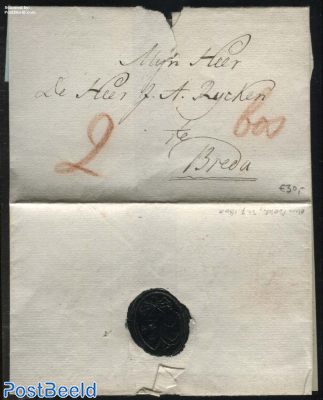 Mijn Heer
De Heer J. A. Rycken
te
Breda
2
bos
€30,-
© PostBeeld